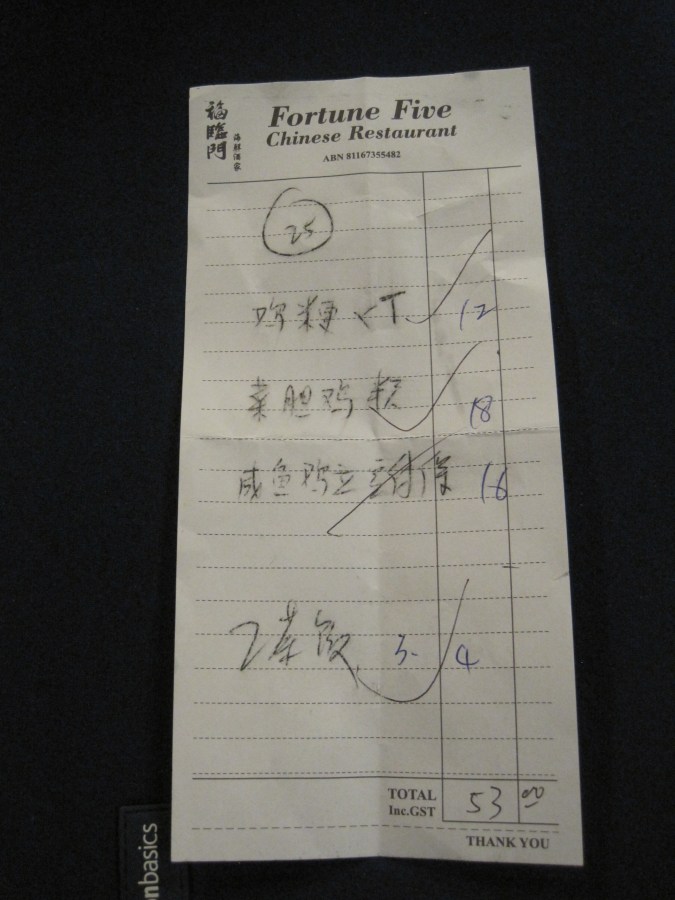 福臨門
海鮮酒家
Fortune Five
Chinese Restaurant
ABN 81167355482
25
12
菜胆鸡 18
咸鱼鸡 16
2茶 3- 4
TOTAL 53 00
Inc.GST
THANK YOU
nbasics